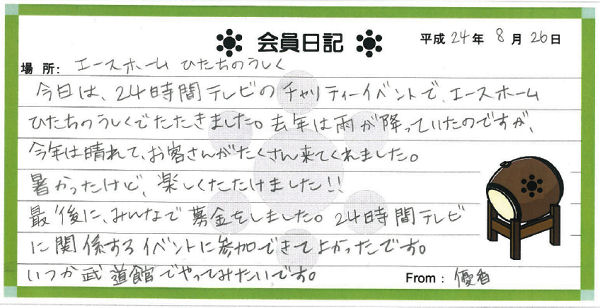 会員日記
平成24年 8月 26日
場所: エースホーム ひたちのうしく
今日は、24時間テレビのチャリティーイベントで、エースホーム
ひたちのうしくでたたきました。去年は雨が降っていたのですが、
今年は晴れて、お客さんがたくさん来てくれました。
暑かったけど、楽しくたたけました!!
最後に、みんなで募金をしました。24時間テレビ
に関係するイベントに参加できてよかったです。
いつか武道館でやってみたいです。
From: 優香